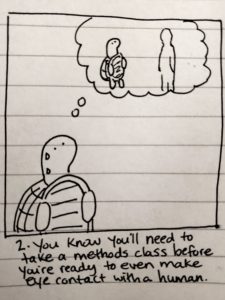 2. You know you'll need to
take a methods class before
you're ready to even make
eye contact with a human.